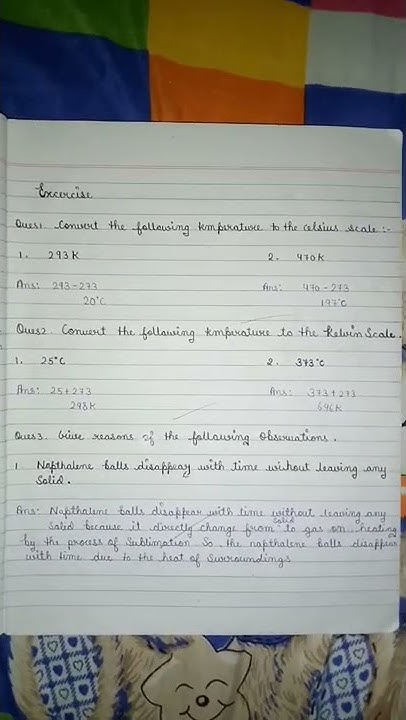 Excercise
Ques1. Convert the following temperature to the celsius scale :-
1. 293K 2. 470K
Ans: 293-273 Ans: 470-273
20°C 197°C
Ques2. Convert the following temperature to the Kelvin Scale.
1. 25°C 2. 373°C
Ans: 25+273 Ans: 373+273
298K 646K
Ques3. Give reasons of the following Observations.
1. Napthalene balls disappear with time without leaving any
Solid.
Ans: Napthalene balls disappear with time without leaving any
Solid because it directly change from solid to gas on heating
by the process of Sublimation So the napthalene balls disappear
with time due to the heat of Surroundings